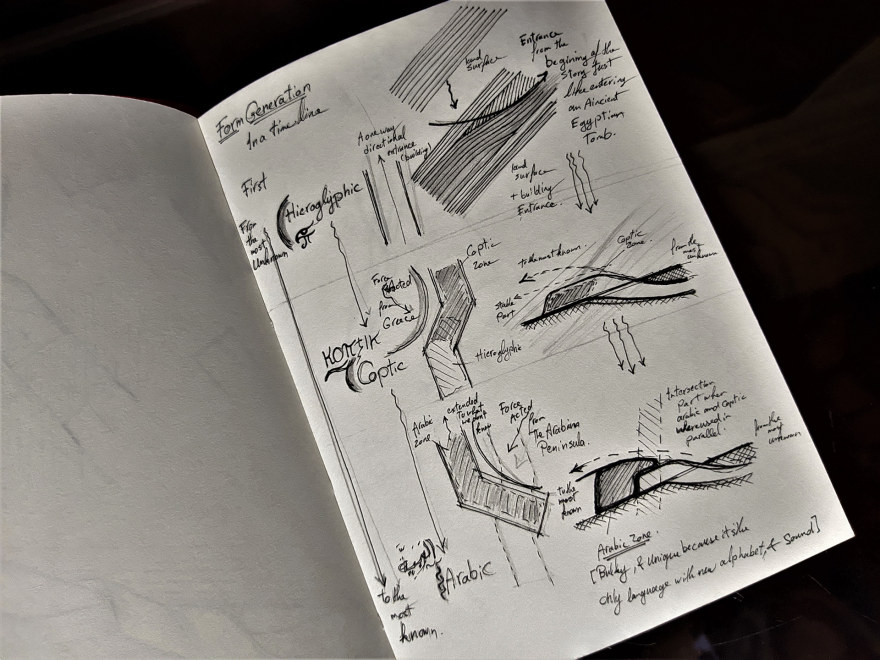 Form Generation
In a time line
land
surface
Entrance
from the
begining of the
story Just
like entering
an Aincient
Egyptian
Tomb.
A one way
directional
entrance
(building)
land
surface
+ building
Entrance.
First
Hieroglyphic
From
the
most
Unknown
Coptic
Zone
Force
Acted
from
Grece
Coptic
Hieroglyphic
to the most known.
Coptic
Zone.
from the
most
unknown
stable
Part
Arabic
Zone
extended
to what
we
Force
Acted
from
The Arabian
Peninsula.
Intersection
part when
arabic and Coptic
where used in
parallel.
from the
most
unknown
to the
most
known
Arabic
to the
most
known.
Arabic Zone
[Bulky, & unique because its the
only language with new alphabet, & Sound]